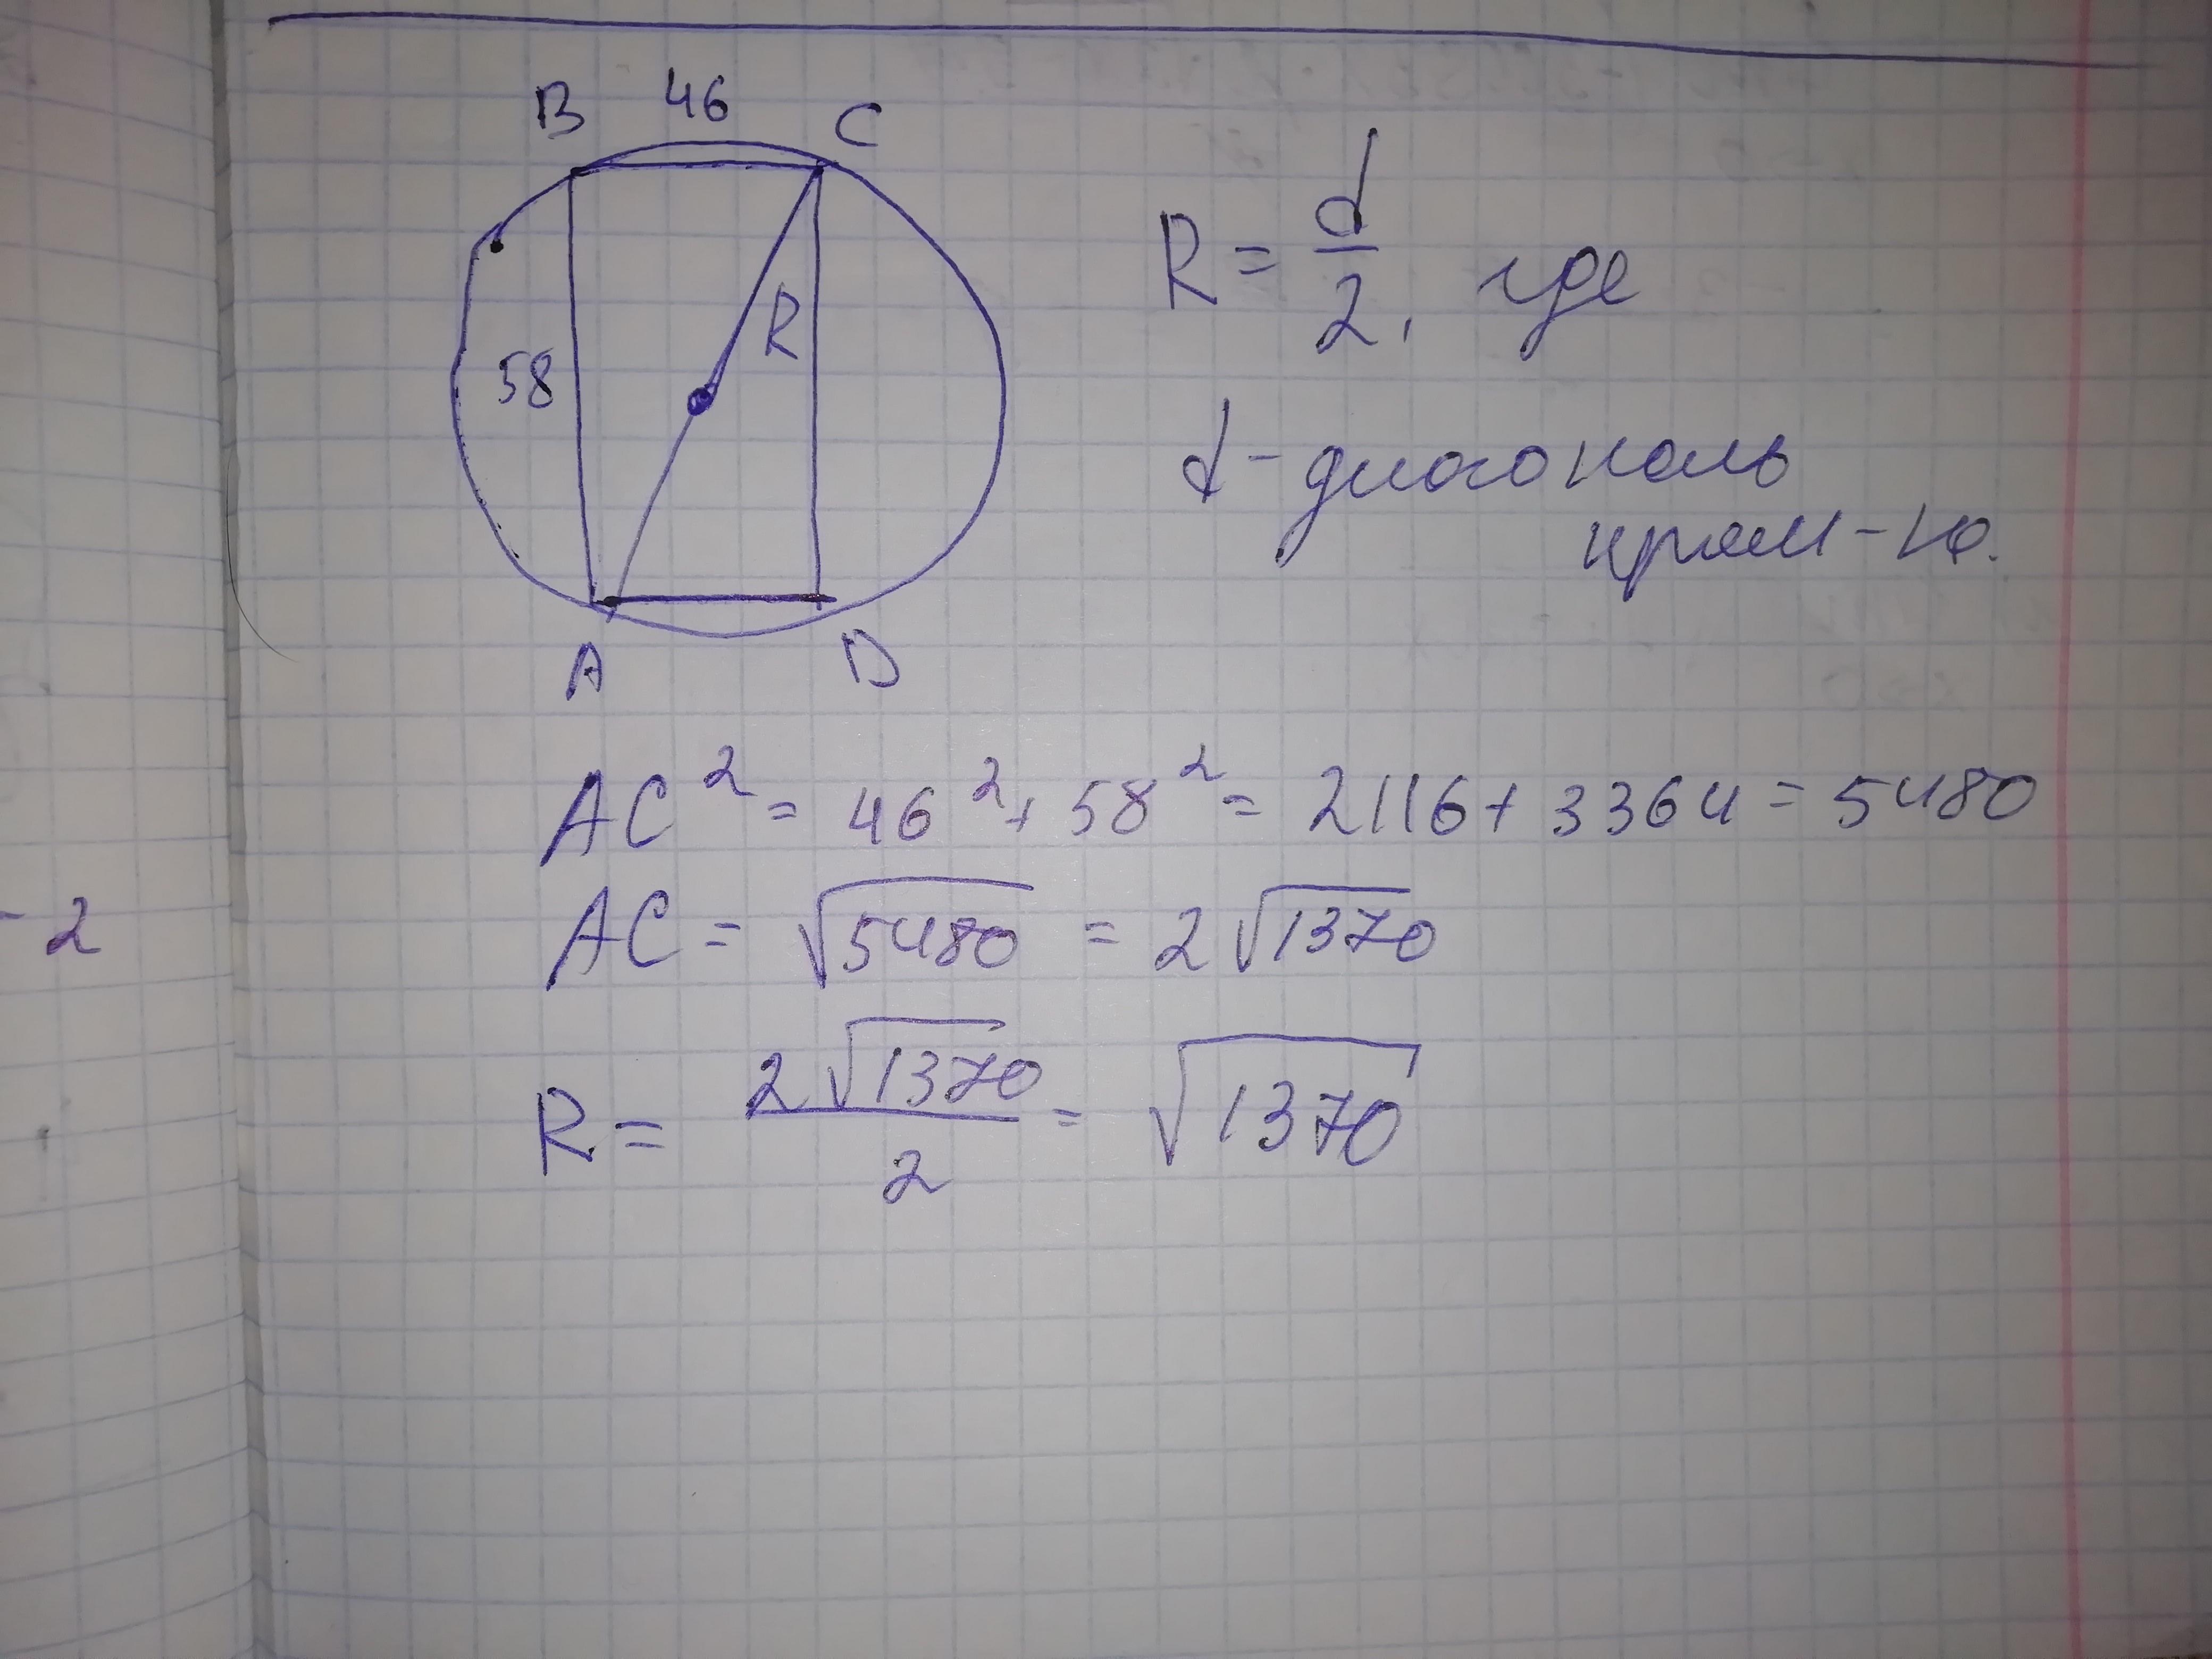 B 46 C
58
R
A D
R = d/2, где
d - диагональ
прям-ка.
AC² = 46² + 58² = 2116 + 3364 = 5480
AC = √5480 = 2√1370
R = 2√1370/2 = √1370
- 2